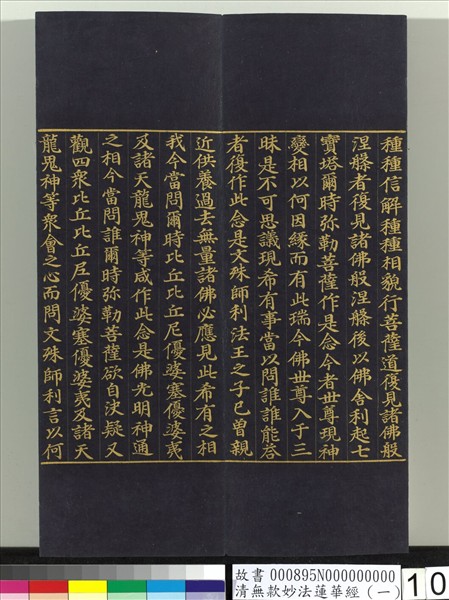 種種信解種種相貌行菩薩道復見諸佛般
涅槃者復見諸佛般涅槃後以佛舍利起七
寶塔爾時弥勒菩薩作是念今者世尊現神
變相以何因緣而有此瑞今佛世尊入于三
昧是不可思議現希有事當以問誰誰能答
者復作此念是文殊師利法王之子已曾親
近供養過去無量諸佛必應見此希有之相
我今當問爾時比丘比丘尼優婆塞優婆夷
及諸天龍鬼神等咸作此念是佛光明神通
之相今當問誰爾時弥勒菩薩欲自決疑又
觀四衆比丘比丘尼優婆塞優婆夷及諸天
龍鬼神等衆會之心而問文殊師利言以何
故書 000895N000000000
清無款妙法蓮華經(一)
10